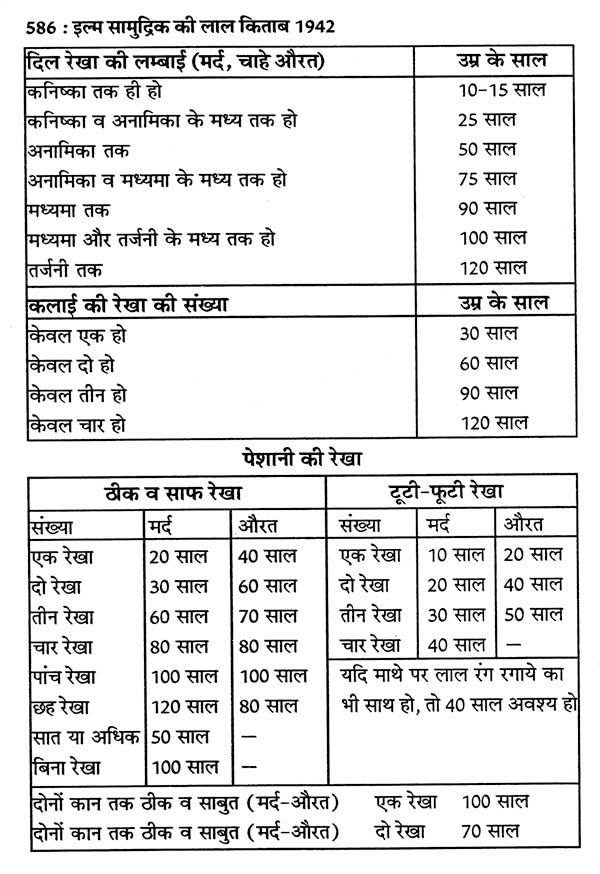 586 : इल्म सामुद्रिक की लाल किताब 1942
दिल रेखा की लम्बाई (मर्द, चाहे औरत) उम्र के साल
कनिष्का तक ही हो 10-15 साल
कनिष्का व अनामिका के मध्य तक हो 25 साल
अनामिका तक 50 साल
अनामिका व मध्यमा के मध्य तक हो 75 साल
मध्यमा तक 90 साल
मध्यमा और तर्जनी के मध्य तक हो 100 साल
तर्जनी तक 120 साल
कलाई की रेखा की संख्या उम्र के साल
केवल एक हो 30 साल
केवल दो हो 60 साल
केवल तीन हो 90 साल
केवल चार हो 120 साल
पेशानी की रेखा
ठीक व साफ रेखा टूटी-फूटी रेखा
संख्या मर्द औरत संख्या मर्द औरत
एक रेखा 20 साल 40 साल एक रेखा 10 साल 20 साल
दो रेखा 30 साल 60 साल दो रेखा 20 साल 40 साल
तीन रेखा 60 साल 70 साल तीन रेखा 30 साल 50 साल
चार रेखा 80 साल 80 साल चार रेखा 40 साल —
पांच रेखा 100 साल 100 साल यदि माथे पर लाल रंग रगाये का
छह रेखा 120 साल 80 साल भी साथ हो, तो 40 साल अवश्य हो
सात या अधिक 50 साल —
बिना रेखा 100 साल —
दोनों कान तक ठीक व साबुत (मर्द-औरत) एक रेखा 100 साल
दोनों कान तक ठीक व साबुत (मर्द-औरत) दो रेखा 70 साल